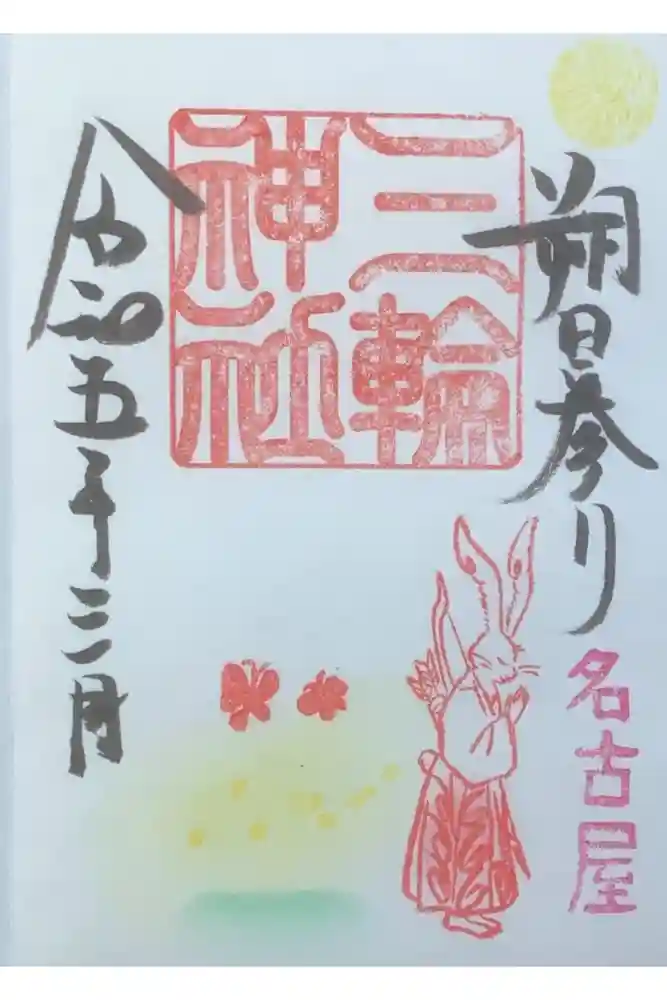 朔日参り
名古屋
三輪
神社
令和五年三月